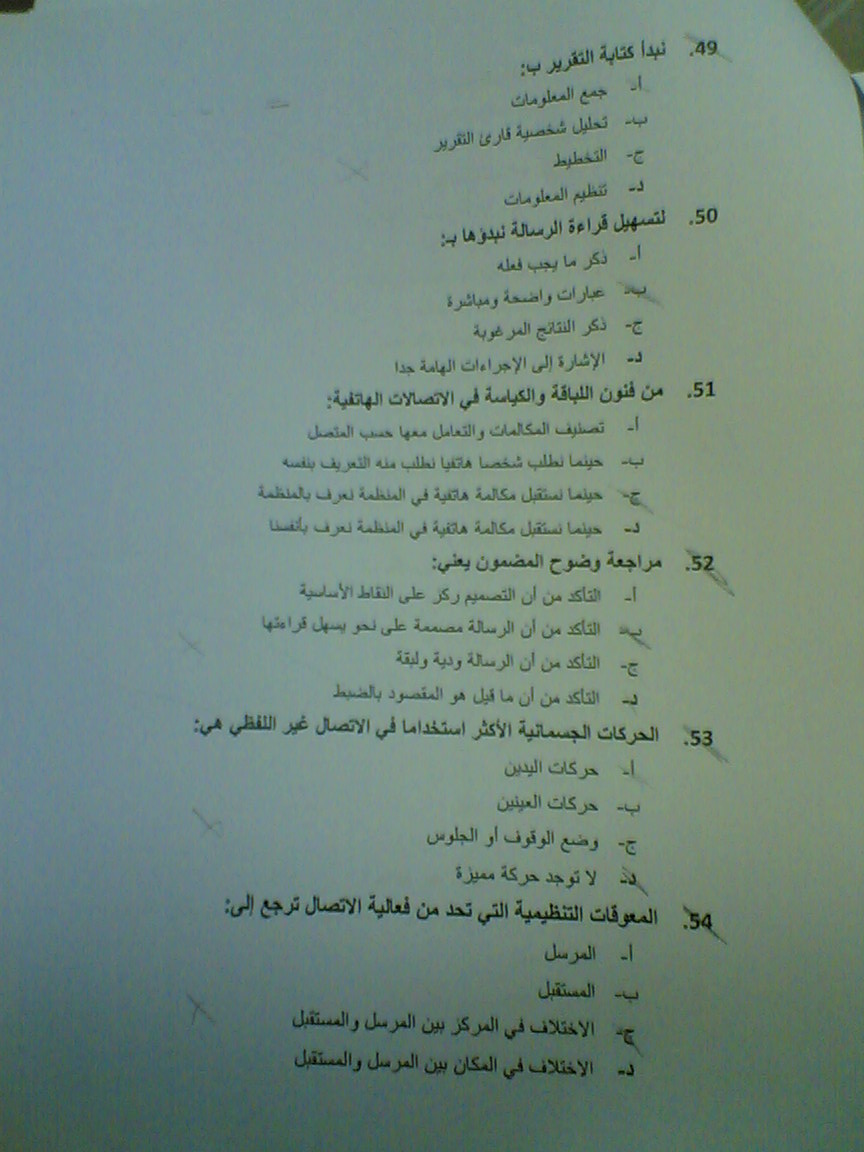 49. نبدأ كتابة التقرير ب:
أ- جمع المعلومات
ب- تحليل شخصية قارئ التقرير
ج- التخطيط
د- تنظيم المعلومات
50. لتسهيل قراءة الرسالة نبدؤها بـ:
أ- ذكر ما يجب فعله
ب- عبارات واضحة ومباشرة
ج- ذكر النتائج المرغوبة
د- الإشارة إلى الإجراءات الهامة جدا
51. من فنون اللباقة والكياسة في الاتصالات الهاتفية:
أ- تصنيف المكالمات والتعامل معها حسب المتصل
ب- حينما نطلب شخصا هاتفيا نطلب منه التعريف بنفسه
ج- حينما نستقبل مكالمة هاتفية في المنظمة نعرف بالمنظمة
د- حينما نستقبل مكالمة هاتفية في المنظمة نعرف بأنفسنا
52. مراجعة وضوح المضمون يعني:
أ- التأكد من أن التصميم ركز على النقاط الأساسية
ب- التأكد من أن الرسالة مصممة على نحو يسهل قراءتها
ج- التأكد من أن الرسالة ودية ولبقة
د- التأكد من أن ما قيل هو المقصود بالضبط
53. الحركات الجسمانية الأكثر استخداما في الاتصال غير اللفظي هي:
أ- حركات اليدين
ب- حركات العينين
ج- وضع الوقوف أو الجلوس
د- لا توجد حركة مميزة
54. المعوقات التنظيمية التي تحد من فعالية الاتصال ترجع إلى:
أ- المرسل
ب- المستقبل
ج- الاختلاف في المركز بين المرسل والمستقبل
د- الاختلاف في المكان بين المرسل والمستقبل